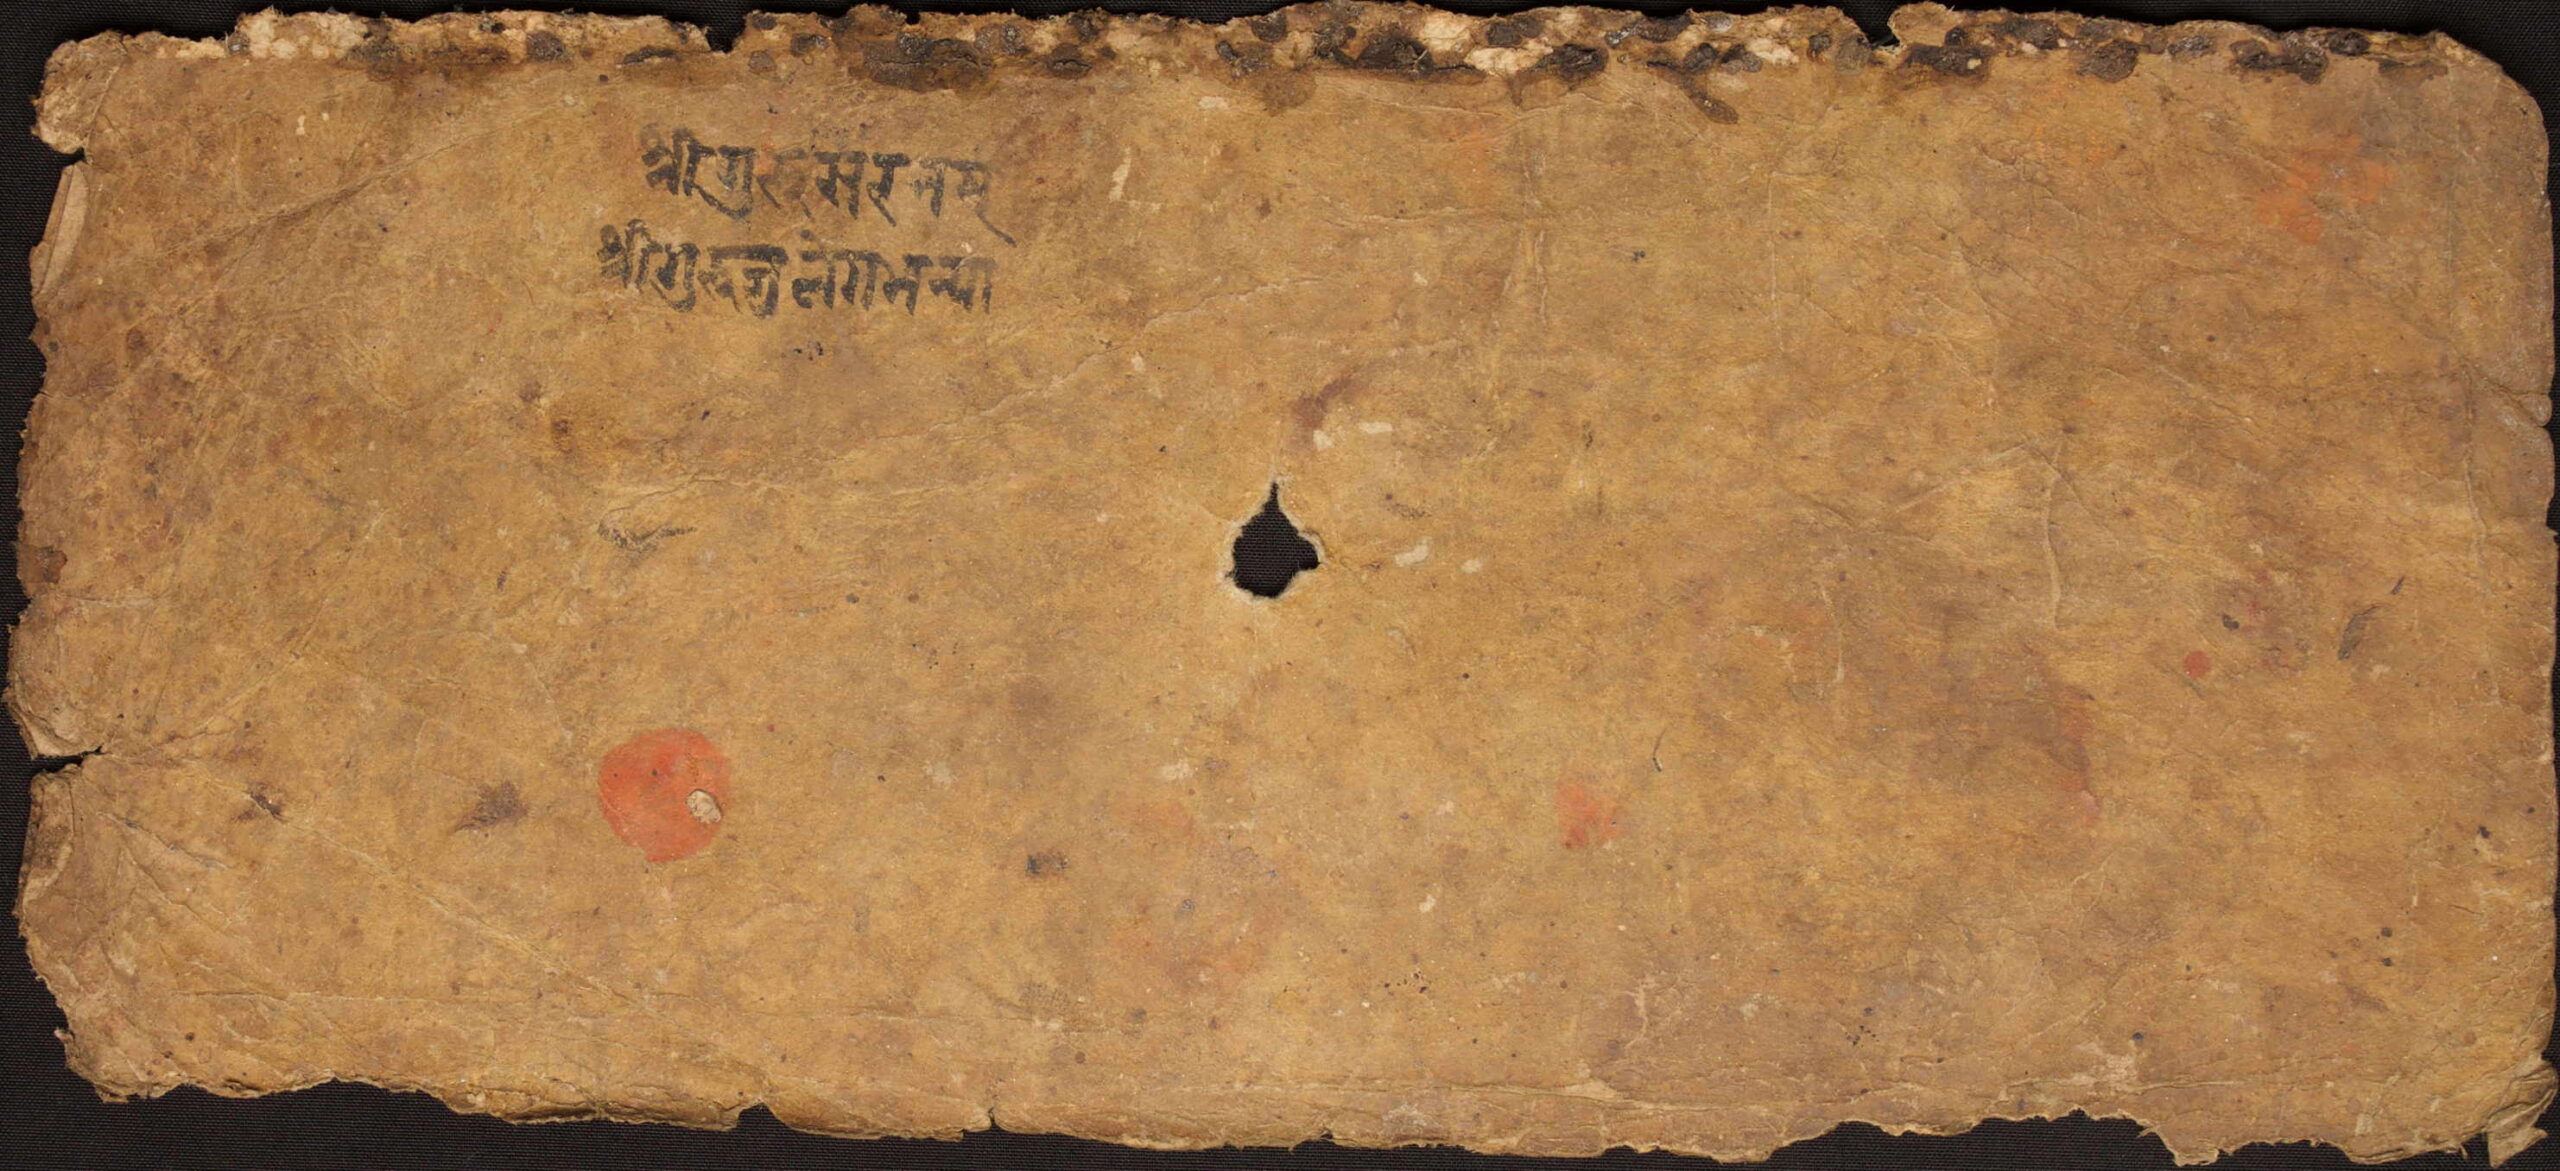 श्रीगुरुसरनम्
श्रीगुरुजुलेगभन्या